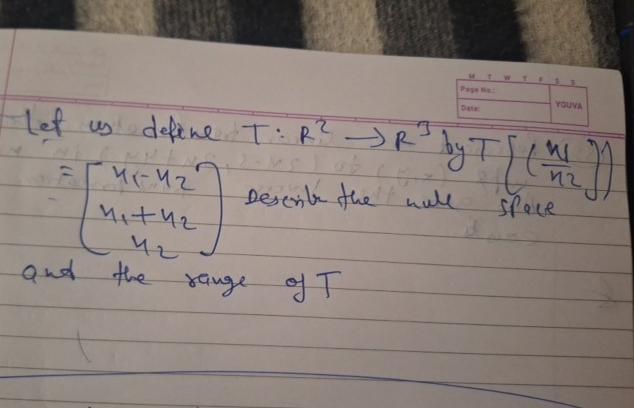 M T W T F S S
Page No.:
Date:
YOUVA
Let us define T: R² → R³ by T[(x1/x2])
= [x1-x2
x1+x2
x2] Describe the null space
and the range of T